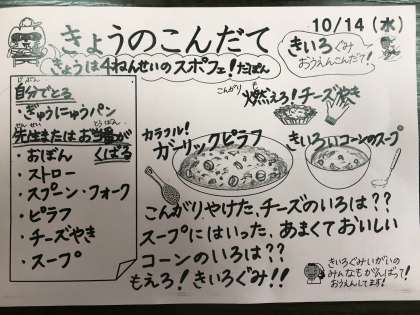 10/14(水)
きょうのこんだて
きょうは4ねんせいのスポフェ!だポン
きいろぐみ
おうえんこんだて!
じぶん
自分でとる
・ぎゅうにゅうパン
せんせい とうばん
先生または お当番が
くばる
・おぼん
・ストロー
・スプーン・フォーク
・ピラフ
・チーズやき
・スープ
こんがり
燃えろ!チーズやき
カラフル!
ガーリックピラフ
きいろいコーンのスープ
こんがりやけた、チーズのいろは??
スープにはいった、あまくておいしい
コーンのいろは??
もえろ!きいろぐみ!!
きいろぐみいがいの
みんなもがんばって!
おうえんしてます!